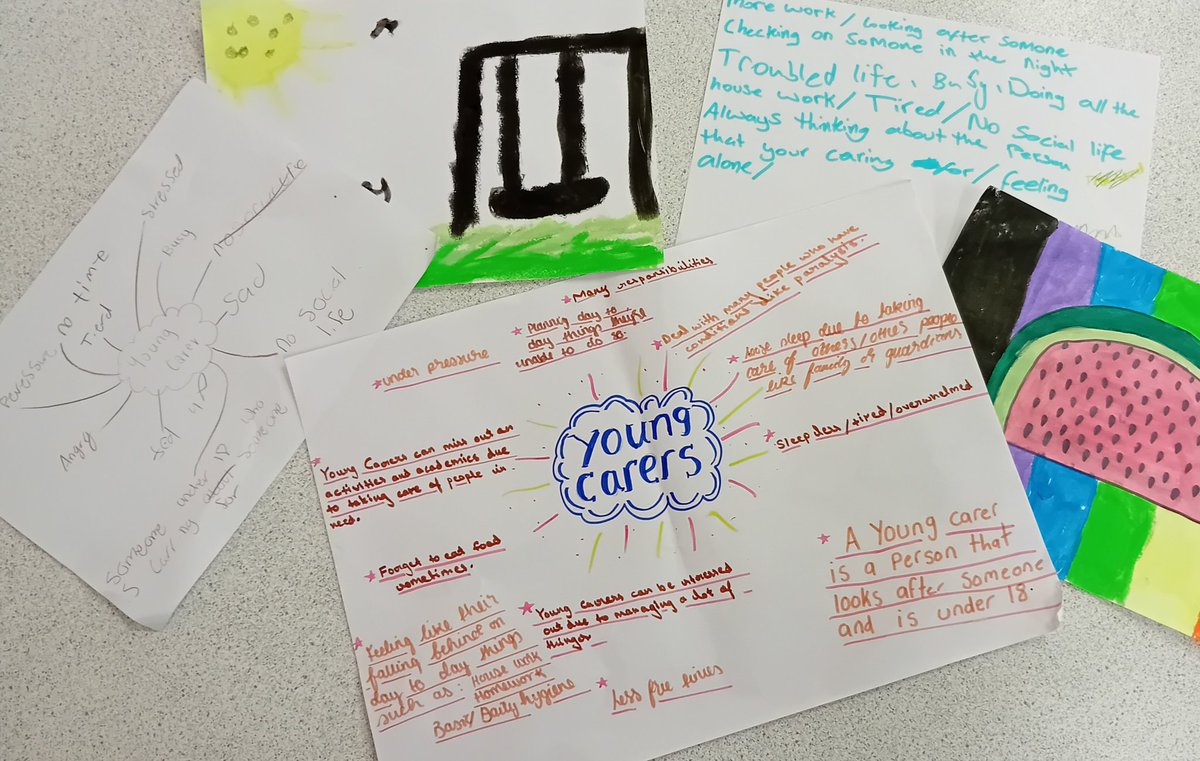 More work/looking after somone
Checking on somone in the night
Troubled life, Busy, Doing all the
house work/Tired/No social life
Always thinking about the person
that your caring for/feeling
alone/
stressed
Busy
no time
Tired
Sad
no social
life
Young
carer
Angry
Sad
Someone under 18 who
caring for someone
*Many responsibilities
*Planning day to
day things
unable to do so.
*Deal with many people who have
conditions like paralysis.
*under pressure
*loose sleep due to taking
care of others/other people
like family or guardians
Young
carers
*Sleepless/tired/overwhelmed
*Young Carers can miss out on
activities and academics due
to taking care of people in
need.
*Forget to eat food
sometimes.
*A Young carer
is a Person that
looks after someone
and is under 18.
*Young carers can be stressed
out due to managing a lot of
things
*Feeling like their
falling behind on
day to day things
such as: House work
Homework
Basic/Daily hygiene
*Less free times